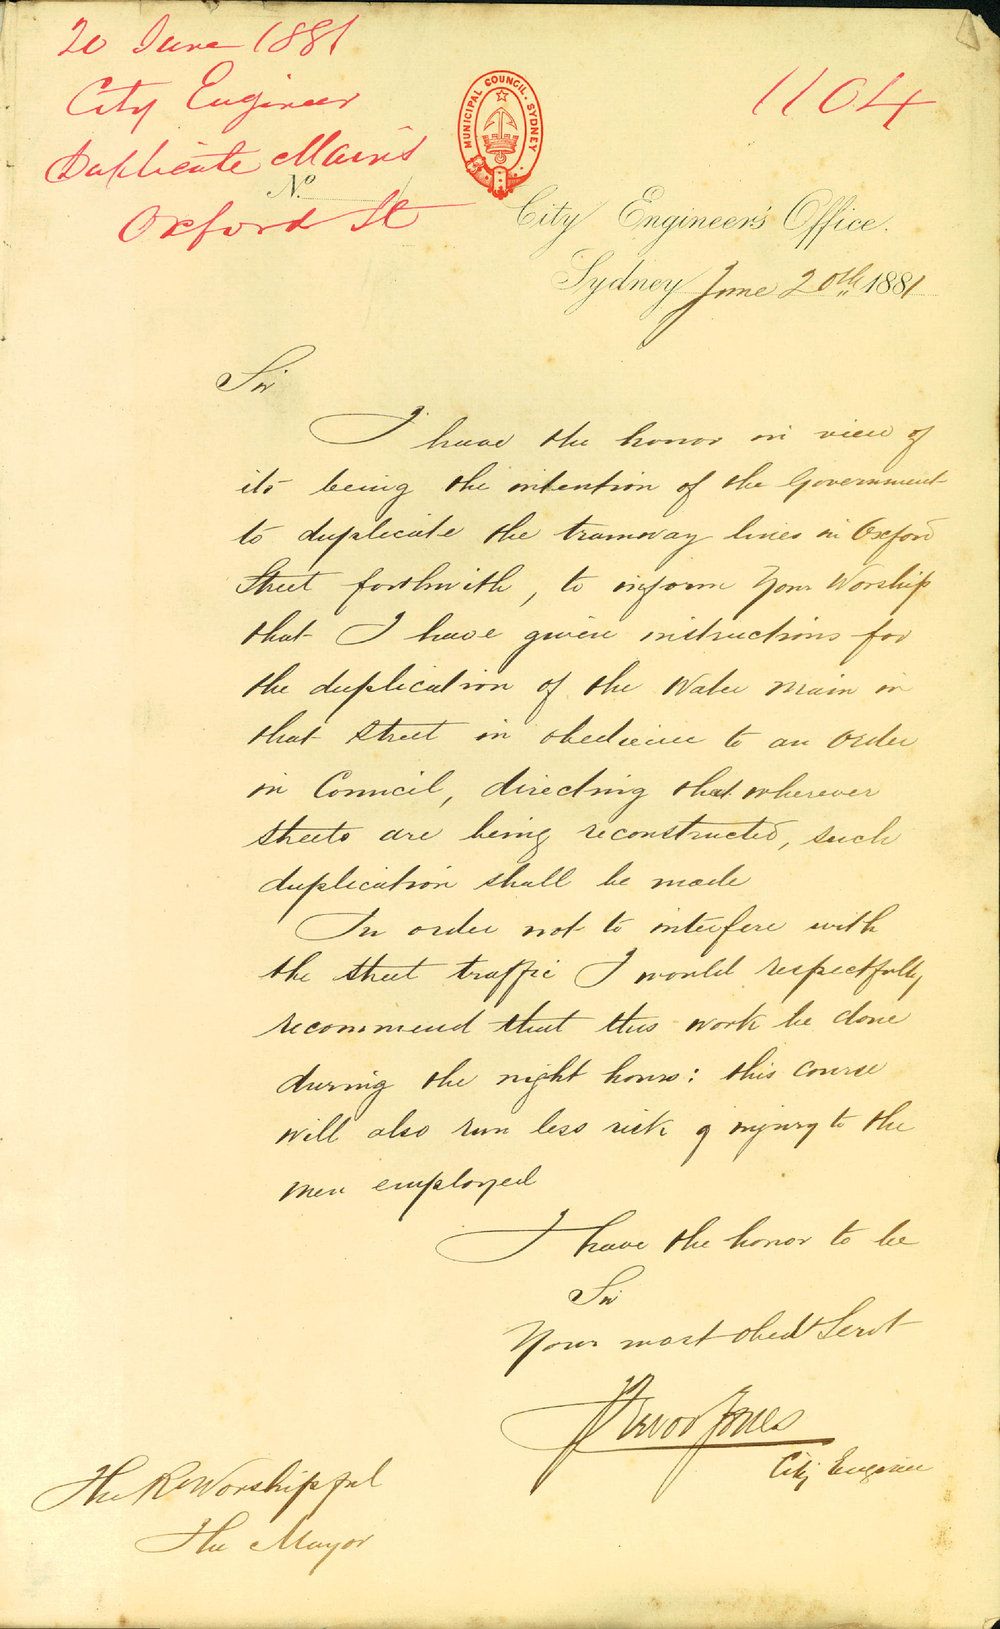 20 June 1881
City Engineer
Duplicate Mains
Oxford St
1104
MUNICIPAL COUNCIL. SYDNEY
No.
City Engineer's Office.
Sydney June 20th 1881
Sir
I have the honor in view of
its being the intention of the Government
to duplicate the tramway lines in Oxford
Street forthwith, to inform Your Worship
that I have given instructions for
the duplication of the Water Main in
that Street in obedience to an Order
in Council, directing that wherever
streets are being reconstructed, such
duplication shall be made
In order not to interfere with
the street traffic I would respectfully
recommend that this work be done
during the night hours: this course
will also run less risk of injury to the
men employed
I have the honor to be
Sir
Your most obedt Servt
Trevor Jones
City Engineer
The Rt Worshipful
The Mayor